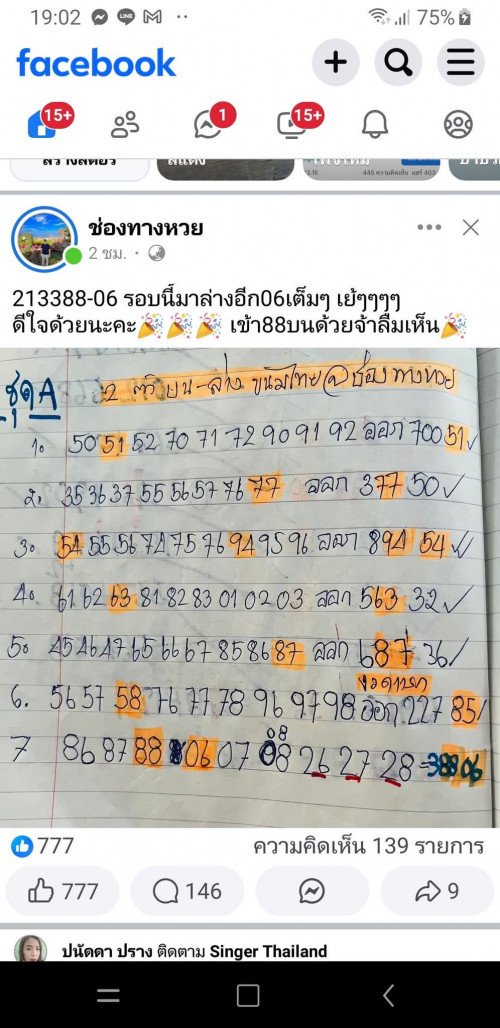 19:02 75%
facebook
15+ 1 15+
3.1K 446 ความคิดเห็น แชร์ 403
ช่องทางหวย
2 ชม. ·
213388-06 รอบนี้มาล่างอีก06เต็มๆ เย้ๆๆๆๆ
ดีใจด้วยนะคะ🎉🎉🎉 เข้า88บนด้วยจ้าลืมเห็น🎉
ชุด A 2 ตัว บน-ล่าง ขนมไทย@ช่องทางหวย
1. 50 51 52 70 71 72 90 91 92 ออก 700 51 ✓
2. 35 36 37 55 56 57 76 77 ออก 377 50 ✓
3. 54 55 56 74 75 76 94 95 96 ออก 894 54 ✓
4. 61 62 63 81 82 83 01 02 03 ออก 563 32 ✓
5. 45 46 47 65 66 67 85 86 87 ออก 687 36 ✓
6. 56 57 58 76 77 78 96 97 98 ออก 227 85 /
08
7 86 87 88 06 07 08 26 27 28 = 388 06
777 ความคิดเห็น 139 รายการ
777 146 9
ปนัดดา ปราง ติดตาม Singer Thailand